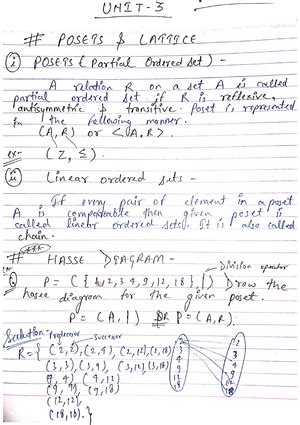 UNIT-3
# POSETS & LATTICE
(i) POSETS (Partial Ordered Set) -
A relation R on a set A is called
partial ordered set if R is reflexive,
antisymmetric & transitive. Poset is represented
in the following manner.
(A, R) or <A, R>.
ex- (Z, ≤).
(ii) Linear ordered sets -
If every pair of element in a poset
A is comparable then given poset is
called linear ordered sets. It is also called
chain.
# HASSE DIAGRAM -
Division operator
Q P = ({ 2, 3, 4, 9, 12, 18 }, |) Draw the
hasse diagram for the given poset.
P = (A, |) OR P = (A, R)
Solution: Predecessor Successor
R = { (2,2), (2,4), (2,12), (2,18)
(3,3), (3,9), (3,12), (3,18)
(4, 4) (4, 12)
(9, 9) (9, 18)
(12, 12),
(18, 18). }
2
3
4
9
12
18
2
3
4
9
12
18